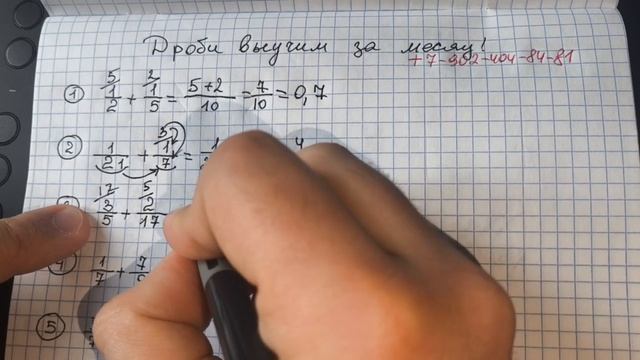 Дроби выучим за месяц!
+7-902-404-84-81
① 5 2
1/2 + 1/5 = 5+2/10 = 7/10 = 0,7
② 3
1/21 + 1/7 = 1 4
17 5
3/5 + 2/17
1/7 + 7
⑤